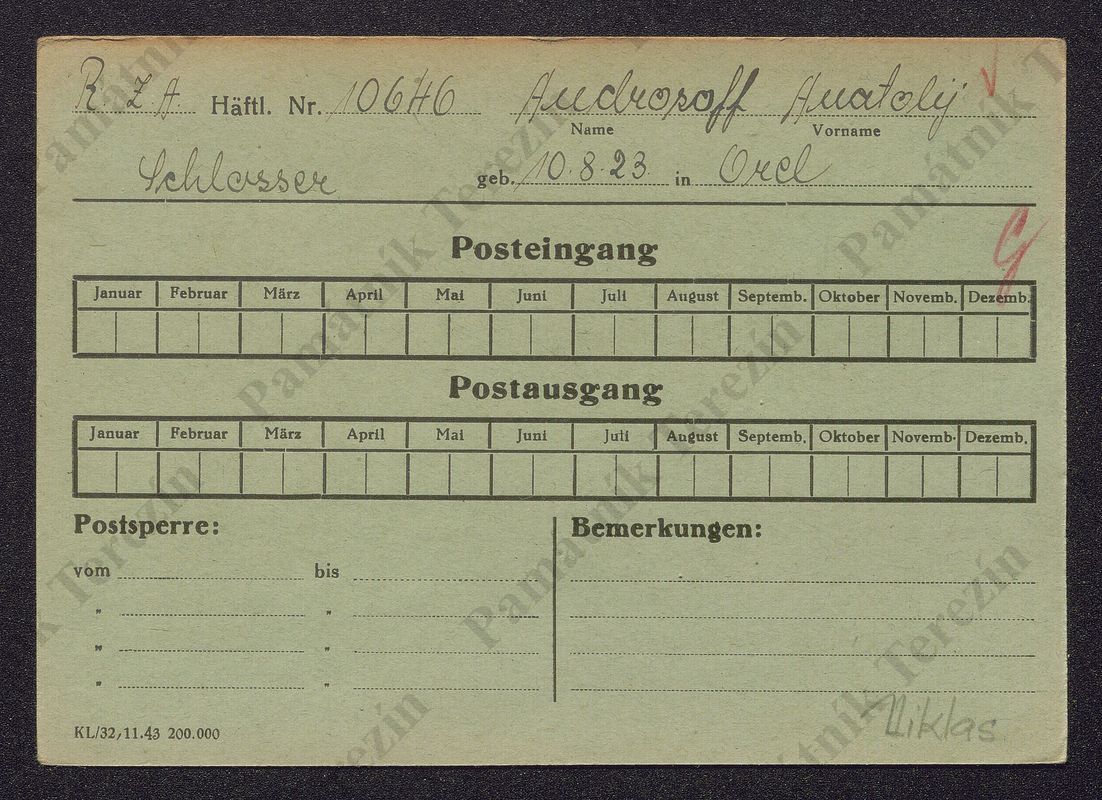 R. Z. A. Häftl. Nr. 10646 Androsoff Anatolij
Name Vorname
Schlosser geb. 10.8.23 in Orel
Posteingang
Januar Februar März April Mai Juni Juli August Septemb. Oktober Novemb. Dezemb.
Postausgang
Januar Februar März April Mai Juni Juli August Septemb. Oktober Novemb. Dezemb.
Postsperre: Bemerkungen:
vom bis
" "
" "
" "
Niklas
KL/32, 11.43 200.000
Památník Terezín